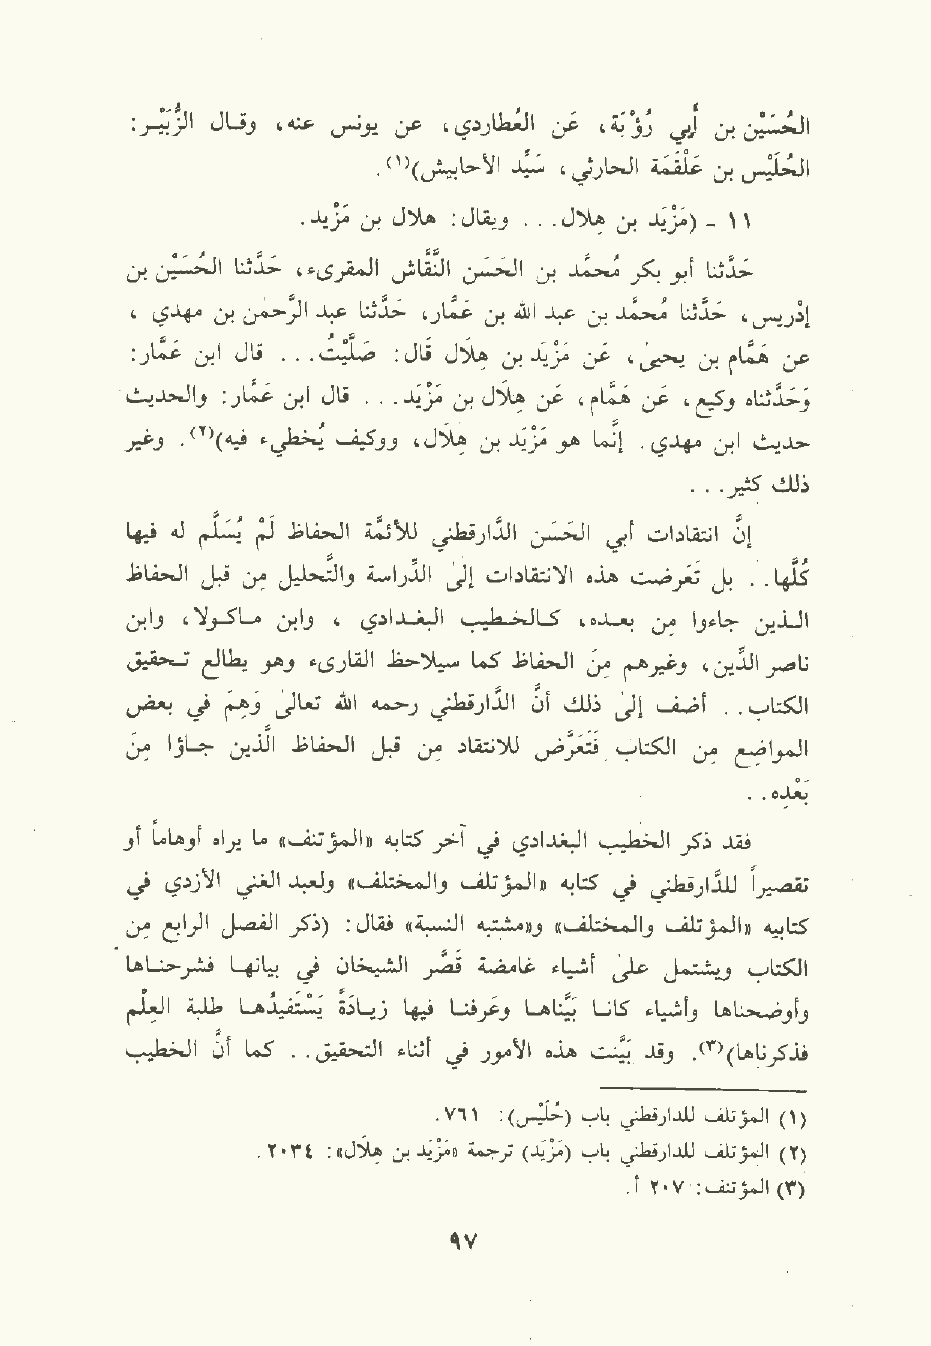 الحُسَيْن بن أبي زُؤْبَة، عَن العُطاردي، عن يونس عنه، وقال الزُّبَيْر:
الحُلَيْس بن عَلْقَمَة الحارثي، سَيِّد الأحابيش)(١).
١١ - (مَزْيَد بن هِلال... ويقال: هلال بن مَزْيَد.
حَدَّثنا أبو بكر مُحمَّد بن الحَسن النَّقَّاش المقرىء، حَدَّثنا الحُسَيْن بن
إدْريس، حَدَّثنا مُحمَّد بن عبد الله بن عَمَّار، حَدَّثنا عبد الرَّحمَن بن مهدي،
عن هَمَّام بن يحيَى، عَن مَزْيَد بن هِلَال قَالَ: صَلَّيْتُ... قال ابن عَمَّار:
وَحَدَّثناه وكيع، عَن هَمَّام، عَن هِلَال بن مَزْيَد... قال ابن عَمَّار: والحديث
حديث ابن مهدي. إنَّما هو مَزْيَد بن هِلَال، ووكيف يُخطىء فيه)(٢). وغير
ذلك كثير...
إنَّ انتقادات أبي الحَسن الدَّارقطني للأئمَّة الحفاظ لَمْ يُسَلَّم له فيها
كُلّها.. بل تَعرضت هذه الانتقادات إلَى الدِّراسة والتَّحليل مِن قبل الحفاظ
الـذين جاءوا من بعـده، كـالـخـطيب البـغـدادي، وابن مـاكـولا، وابن
ناصر الدِّين، وغيرهم مِن الحفاظ كما سيلاحظ القارىء وهو يطالع تحقيق
الكتاب.. أضف إلَى ذلك أنَّ الدَّارقطني رحمه الله تعالَى وَهِمَ في بعض
المواضِع من الكتاب فَتَعَرَّض للانتقاد مِن قبل الحفاظ الَّذين جـاؤا مِن
بَعْدِه..
فقد ذكر الخطيب البغدادي في آخر كتابه «المؤتنف» ما يراه أوهاماً أو
تقصيراً للدَّارقطني في كتابه «المؤتلف والمختلف» ولعبد الغني الأزدي في
كتابيه «المؤتلف والمختلف» و«مشتبه النسبة» فقال: (ذكر الفصل الرابع مِن
الكتاب ويشتمل علَى أشياء غامضة قصَّر الشيخان في بيانهـا فشرحـنـاهـا
وأوضحناها وأشياء كانـا بَيَّنـاهـا وعَرفـنـا فيها زيـادَةً يَسْتَفيدُهـا طلبة العِلْم
فذكرناها)(٣). وقد بيَّنت هذه الأمور في أثناء التحقيق.. كما أنَّ الخطيب
(١) المؤتلف للدارقطني باب (حُلَيْس): ٧٦١.
(٢) المؤتلف للدارقطني باب (مَزْيَد) ترجمة «مَزْيَد بن هِلَال»: ٢٠٣٤.
(٣) المؤتنف: ٢٠٧ أ.
٩٧